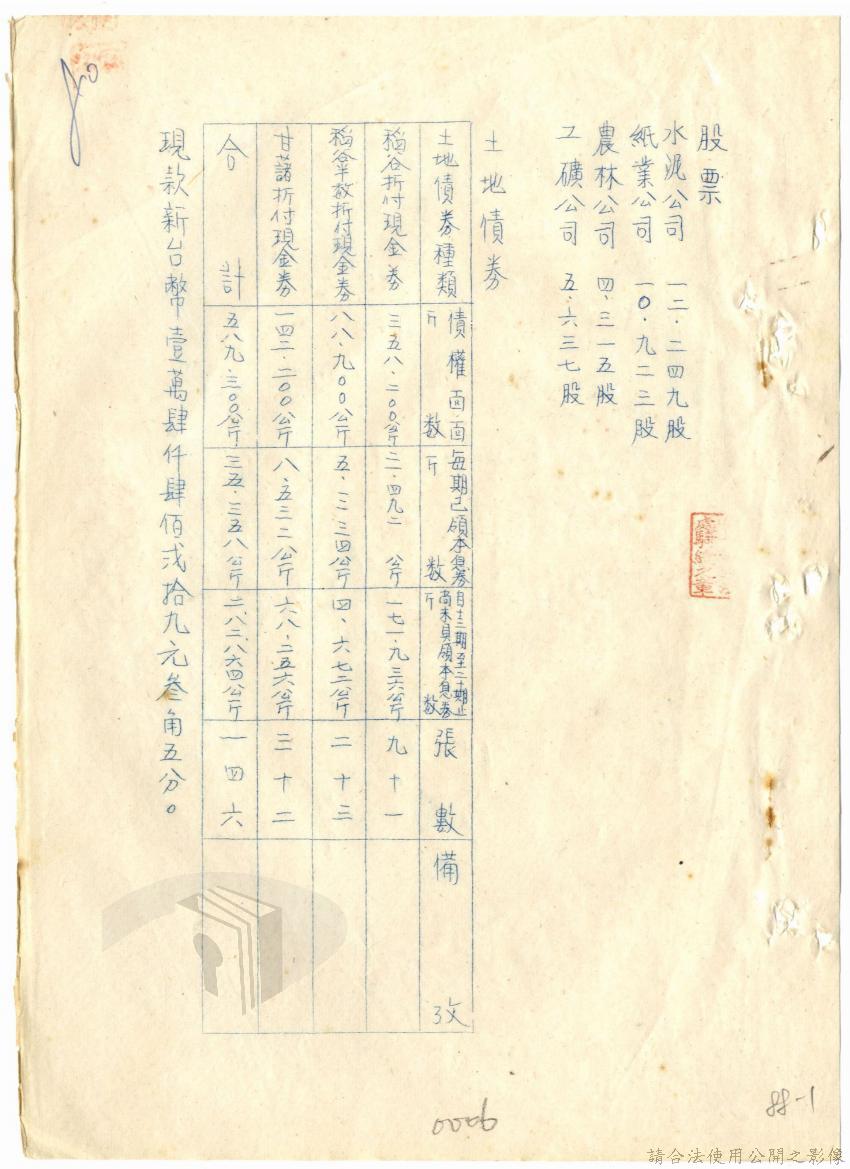 股票
水泥公司 一二．二四九股
紙業公司 一〇．九二三股
農林公司 四．三一五股
工礦公司 五．六三七股
土地債券
土地債券種類 債權面面斤数 每期已領本息券斤数 自十三期至二十期止尚未具領本息券斤数 張數 備攷
稻谷折付現金券 三五八．二〇〇公斤 二一．四九二公斤 一七一．九三六公斤 九十一
稻谷半数折付現金券 八八．九〇〇公斤 五．三三四公斤 四．六七二公斤 二十三
甘藷折付現金券 一四二．二〇〇公斤 八．五三二公斤 六八．二五六公斤 三十二
合計 五八九．三〇〇公斤 三五．三五八公斤 二八二．八六四公斤 一四六
現款新台幣壹萬肆仟肆佰弍拾九元叁角五分。
0006
88-1
請合法使用公開之影像